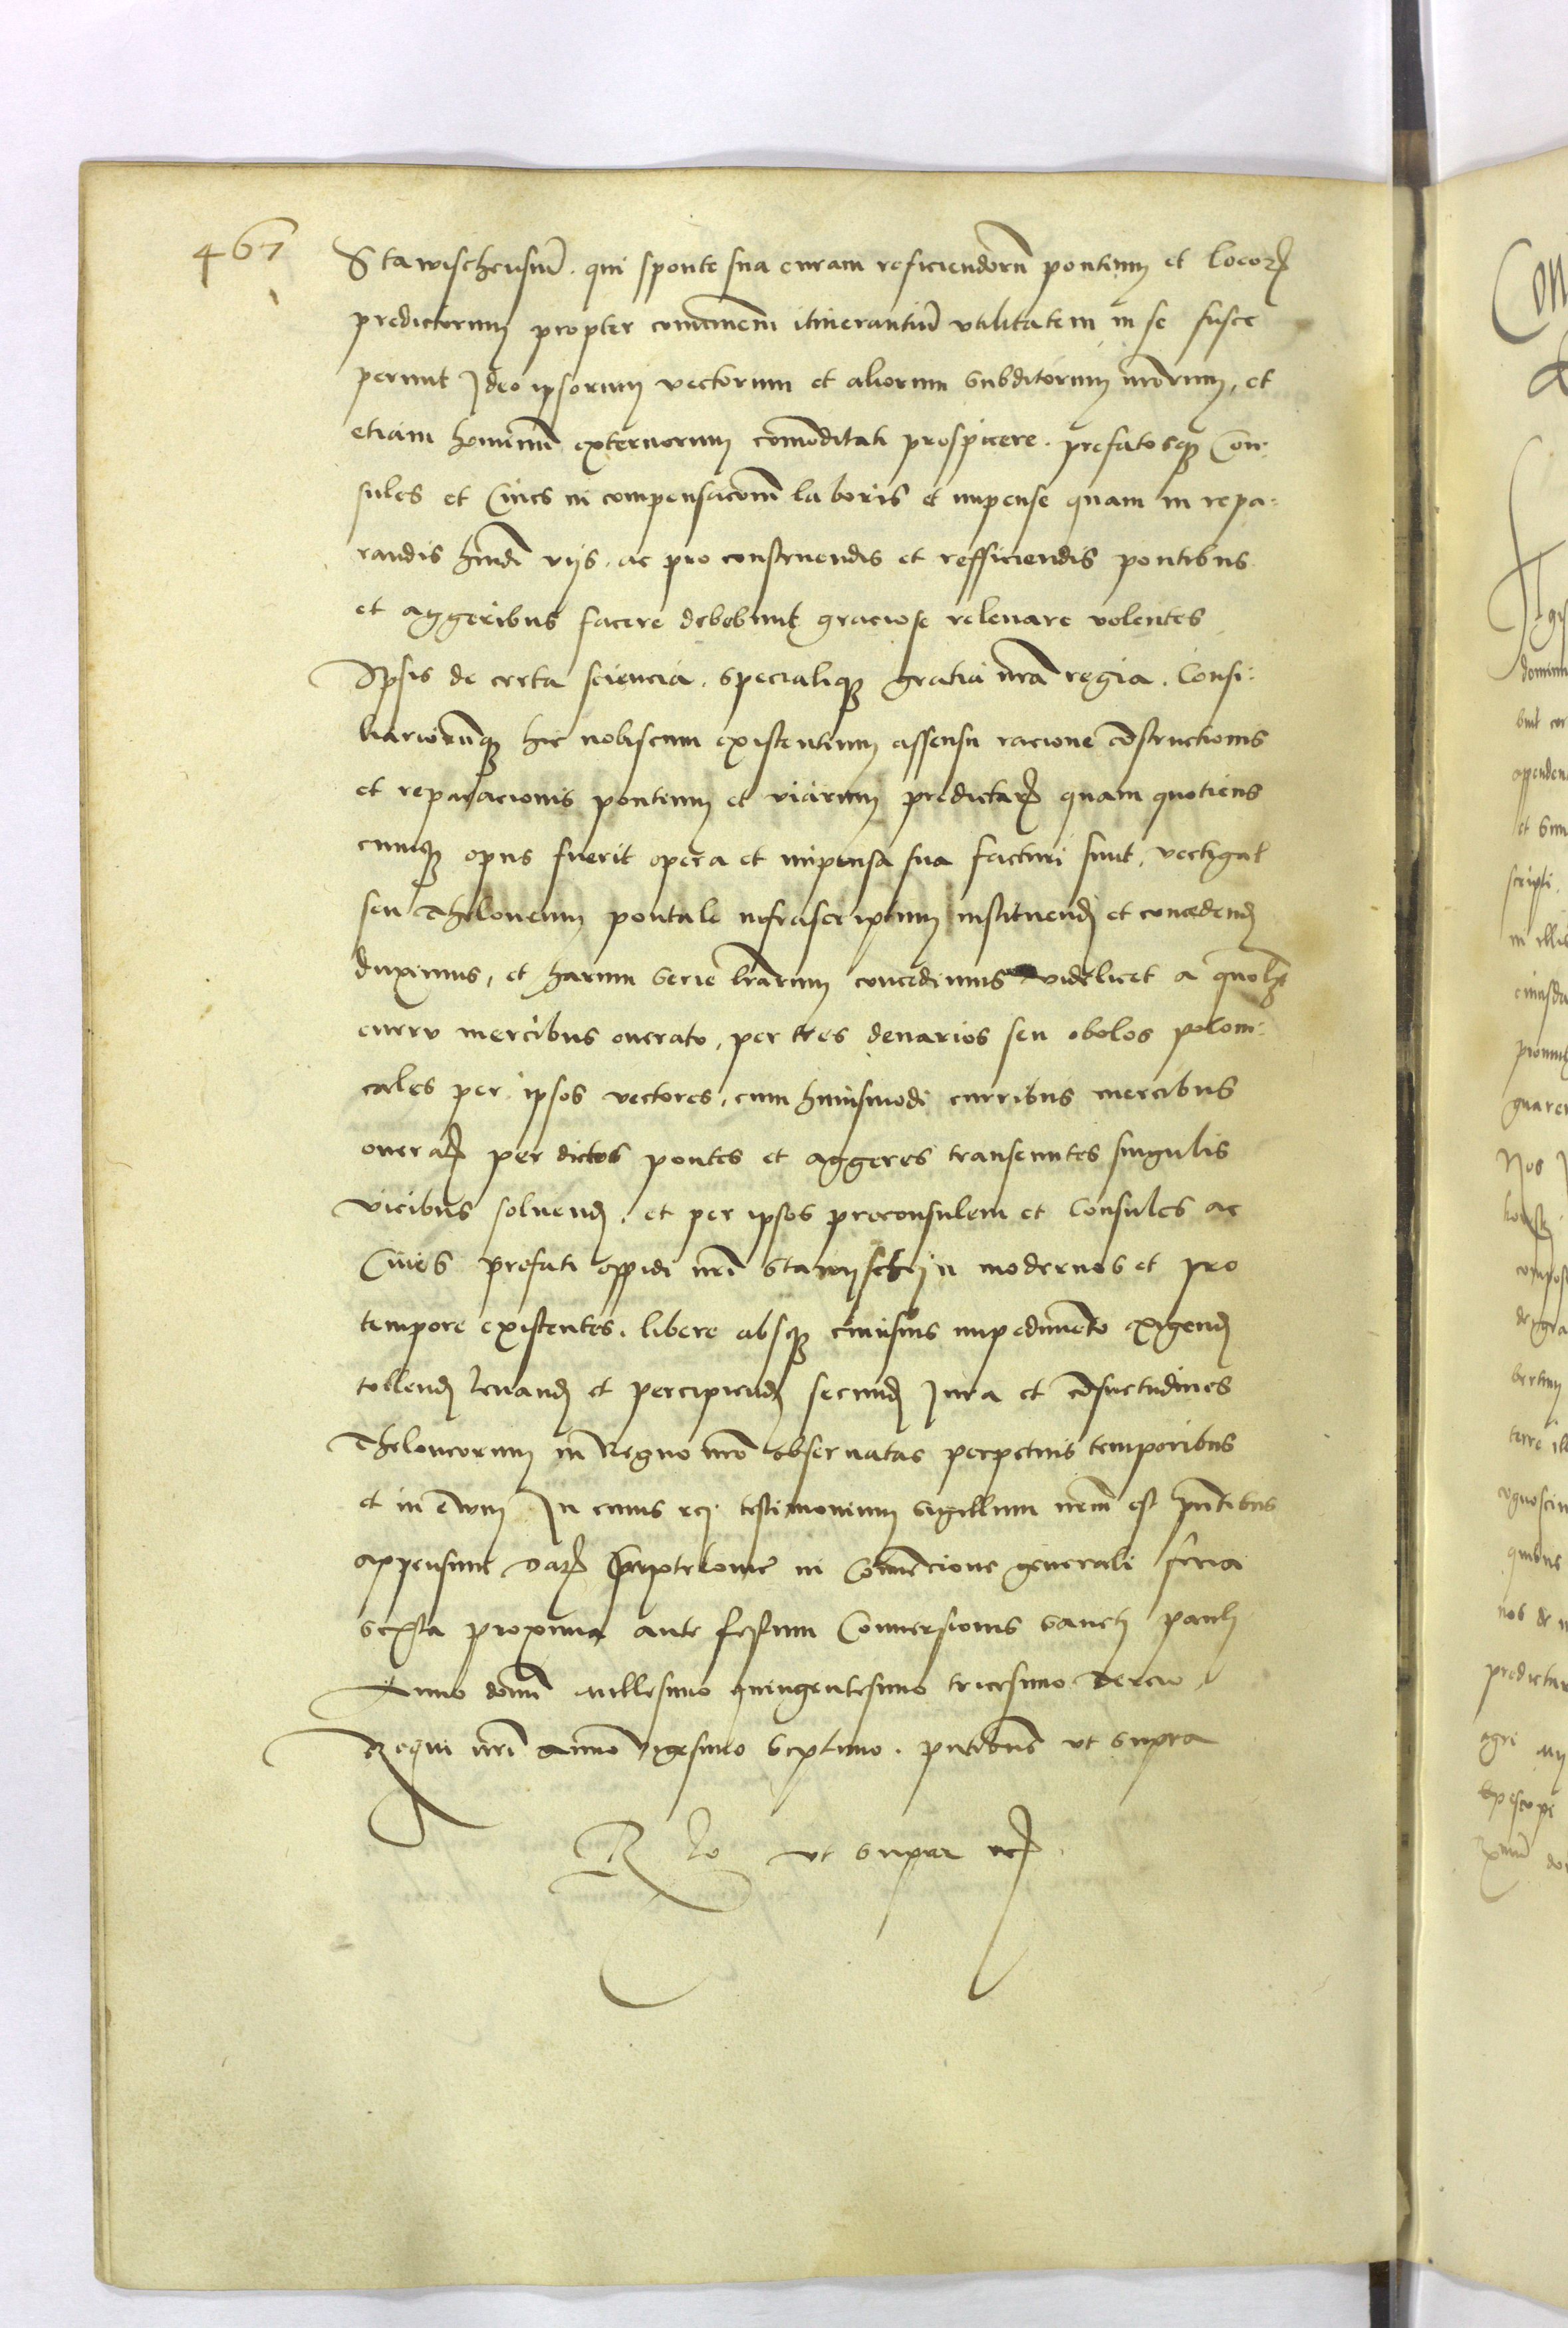 467
Stawischensiu̅. qui sponte sua curam reficiendoru̅ pontium et locorꝝ
predictorum propter com̅unem itinerantiu̅ vtilitatem in se susce
perunt Ideo ipsorum vectorum et aliorum subditorum nr̅orum, et
etiam hominu̅ externorum com̅oditati prospicere. prefatosqꝫ Con-
sules et Ciues in compensac̅om laboris et impense quam in repa-
randis hm̅di vijs. ac pro construendis et refficiendis pontibus
et aggeribus facere debebunt graciose releuare volentes
Ipsis de certa sciencia. specialiqꝫ gratia nr̅a regia. Consi-
liariorumqꝫ hic nobiscum existentium assensu racione ꝯstructionis
et reparacionis pontium et viarum predictarꝝ quam quotiens
cunqꝫ opus fuerit opera et impensa sua facturi sunt, vectigal
seu Theloneum pontale infrascriptum instituendꝭ et concedendꝭ
duximus, et harum serie lr̅arum concedimus videlicet a quolꝫ
curru mercibus onerato, per tres denarios seu obolos poloni-
cales per ipsos vectores, cum huiusmodi curribus mercibus
oneratꝭ per dictos pontes et aggeres transeuntes singulis
vicibus soluendꝭ. et per ipsos preconsulem et Consules ac
Ciues prefati oppidi nr̅i Stawijschijn modernos et pro
tempore existentes. libere absqꝫ cuiusuis impedimento exigendꝭ
tollendꝭ leuandꝭ et percipiendꝭ secundꝭ Jura et ꝯsuetudines
Theloneorum in Regno nr̅o obseruatas perpetuis temporibus
et in ewum In cuius rej testimonium sigillum nr̅um est pn̅tibus
appensum Datꝭ in Conuencione generali feria
sexta proxima ante festum Conuersionis sancti pauli
Anno domi̅ millesimo quingentesimo tricesimo tercio
Regni nr̅i anno vigesimo septimo. pn̅tibus vt supra
R̅ lo vt supra etc̅